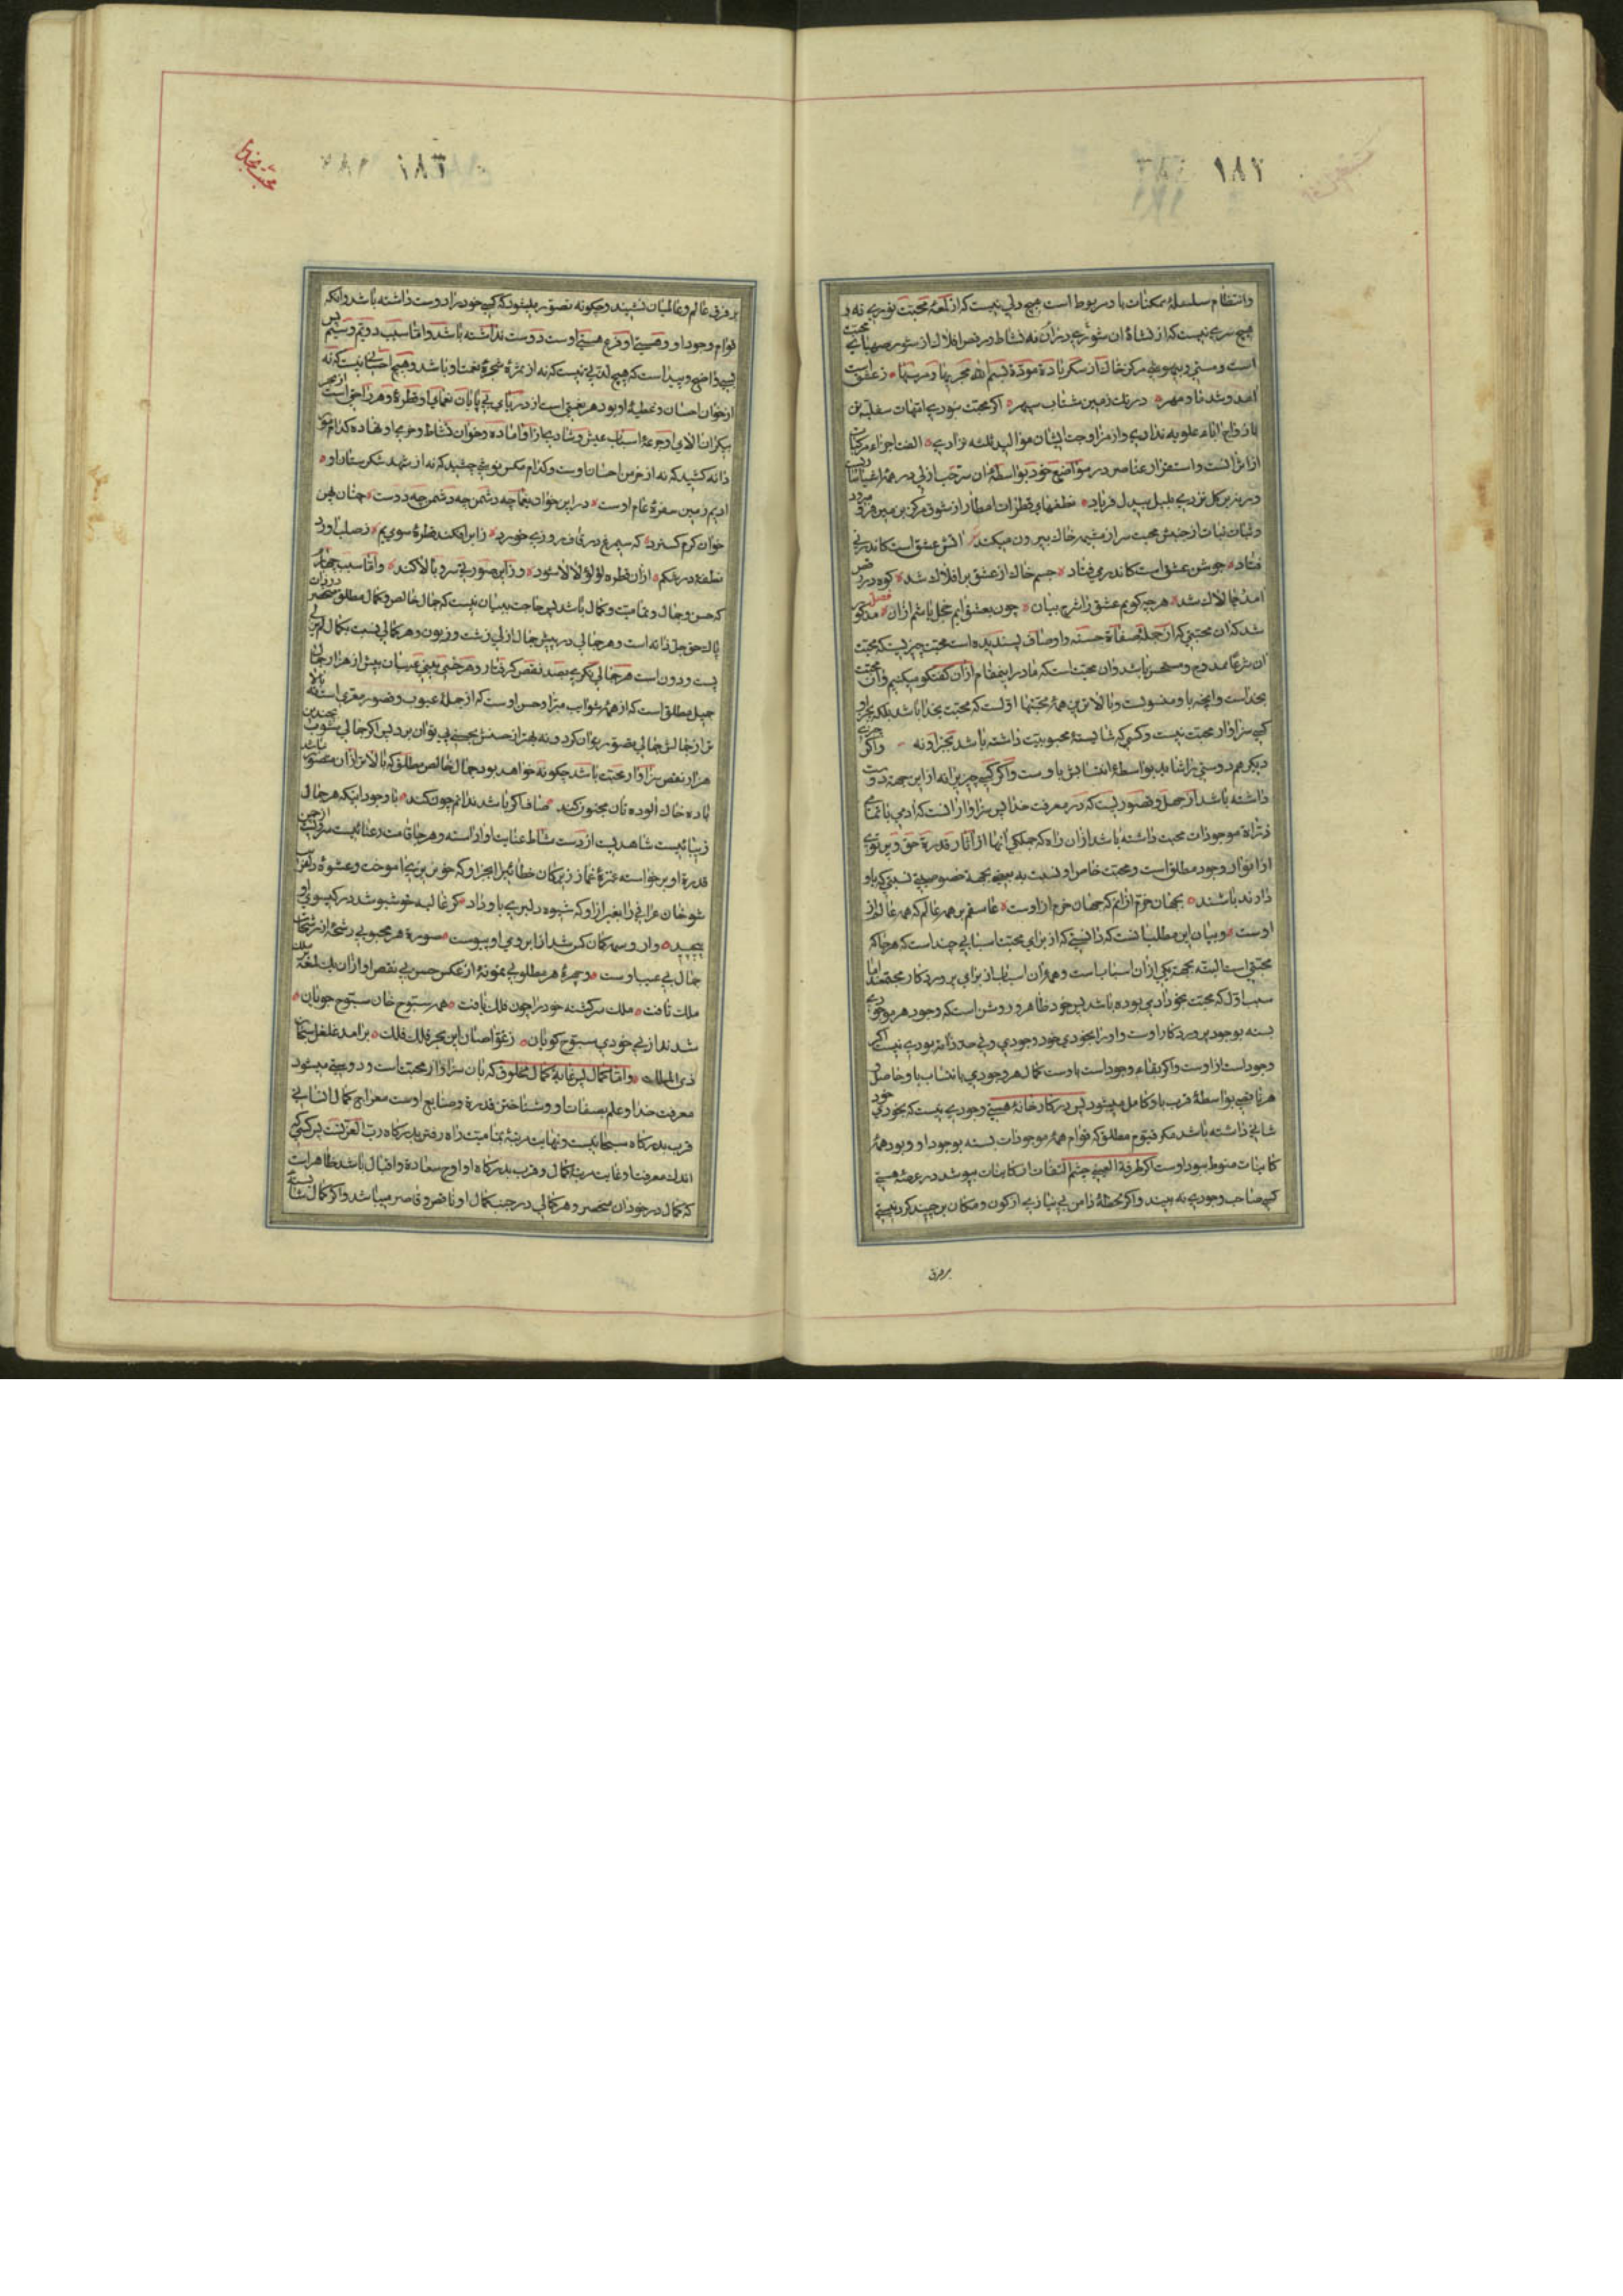 ١٨٢
وانتظام سلسلهٔ ممکنات باو مربوط است هیچ دلی نیست که از لمعهٔ محبت نوری نه و
هیچ سری نیست که از نشاهٔ آن شوری در آن نه نشاط در رقص افلاک از شور صهبای محبت
است و مستی و بیهوشی مرکز خاک از سکر بادهٔ مودة بسم الله مجریها ومرسیها ز عشق است
آمد و شد ماه و مهر درنگ زمین شتاب سپهر اگر محبت نبودی امهات سفلیه تن
بازدواج آباء علویه ندادی و از مزاوجت ایشان موالید ثلثه نزادی الفت اجزاء مرکبات
از اثر آنست و استقرار عناصر در مواضع خود بواسطهٔ آن سر حب ازلی در همه اشیا ساریست
ورنه بر گل نزدی بلبل بیدل فریاد نطفهای قطرات امطار از شوق مرکز بر زمین فرو میرود
و نبات از جنبش محبت سر از مشیمه خاک بیرون میکند آتش عشق است کاندر نی
فتاد جوشش عشق است کاندر می فتاد جسم خاک از عشق بر افلاک شد کوه در رقص
آمد و چالاک شد هرچه گویم عشق را شرح بیان چون بعشق آیم خجل باشم از آن فصل مذکور
شد که آن محبتی که از جمله صفاة حسنه و اوصاف پسندیده است محبت چیزیست که محبت
آن شرعا ممدوح و مستحسن باشد و آن محبت است که ما در اینمقام از آن گفتگو میکنیم و آن محبت
بخداست و آنچه باو منسوبست و بالاترین همهٔ محبتها اولست که محبت بخدا باشد بلکه بجز او
کسی سزاوار محبت نیست و کسی که شایستهٔ محبوبیت داشته باشد بجز او نه و اگر چیزی
دیگر هم دوستی را شاید بواسطهٔ انتسابش باوست و اگر کسی چیزی را نه از این جهت دوست
داشته باشد از جهل و قصوریست که در معرفت خدا پس سزاوار آنست که آدمی با تمامی
ذراة موجودات محبت داشته باشد از آن راه که جملگی آنها از آثار قدرة حق و پرتوی
از انوار وجود مطلق است و محبت خاص او نسبت به بعضی بجهة خصوصیتی نسبتی که باو
دارند باشند بجهان خرم از آنم که جهان خرم ازوست عاشقم بر همه عالم که همه عالم از
اوست و بیان این مطلب آنست که دانستی که از برای محبت اسبابی چند است که هرجا که
محبتی است البته بجهة یکی از آن اسباب است و همهٔ آن اسباب از برای پروردگار مجتمعند اما
سبب اول که محبت بخود آدمی بوده باشد پس خود ظاهر و روشن است که وجود هر موجودی
بسته بوجود پروردگار اوست و او را بخودی خود وجودی و فی حد ذاته بودی نیست اگر
وجود است از اوست و اگر بقاء وجود است باوست کمال هر وجودی بانتساب باو حاصل و
هر ناقصی بواسطهٔ قرب باو کامل میشود پس در کارخانهٔ هستی وجودی نیست که بخودی خود
شانی داشته باشد مگر قیوم مطلق که قوام همهٔ موجودات بسته بوجود او و بود همهٔ
کاینات منوط ببود اوست اگر طرفة العینی چشم التفات از کاینات بپوشد در عرصهٔ هستی
کسی صاحب وجودی نه بیند و اگر لحظهٔ دامن بی نیازی از کون و مکان برچیند گرد نیستی
بر فرق
١٨٣
محبت بخدا
بر فرق عالم و عالمیان نشیند و چگونه تصور میشود که کسی خود را دوست داشته باشد و آنکه
قوام وجود او و هستی او فرع هستی اوست دوست نداشته باشد و اما سبب دویم و سیم پس
بسی واضح و پیدا است که هیچ لذتی نیست که نه از ثمرهٔ شجرهٔ نعمت او باشد و هیچ احسانی نیست که نه
از خوان احسان و عطیهٔ او بود هر نعمتی است از دریای بی پایان نعمای او قطرهٔ و هر راحتی است از بحر
بیکران آلای او جرعهٔ اسباب عیش و شادی ما را او آماده و خوان نشاط و خرمی او نهاده کدام مور
دانه کشید که نه از خرمن احسان اوست و کدام مگس نوشی چشید که نه از شهد شکرستان او
ادیم زمین سفرهٔ عام اوست در این خوان یغما چه دشمن چه دوست چنان پهن
خوان کرم گسترد که سیمرغ در قاف روزی خورد ز ابر افکند قطرهٔ سوی یم ز صلب آورد
نطفه در شکم از آن قطره لؤلؤ لالا کند وزین صورتی سرو بالا کند و اما سبب چهارم
که حسن و جمال و تمامیت و کمال باشد پس حاجت ببیان نیست که جمال خالص و کمال مطلق منحصر در ذات
پاک حق جل ذکره است و هر جمالی در پیش جمال ازلی زشت و زبون و هر کمالی نسبت بکمال لم یزلی
پست و دون است هر جمالی نگری بصد نقص گرفتار و هر حسنی بینی عیبشان بیش از هزار جمال
جمیل مطلق است که از همهٔ شوایب مبرا و حسن اوست که از جملهٔ عیوب و قصور معری است نه بالا
تر از جمالش جمالی تصور توان کرد و نه بهتر از حسنش بحسنی پی توان برد پس اگر جمالی مشوب بچندین
هزار نقص سزاوار محبت باشد چگونه خواهد بود جمال خالص مطلق که بالاتر از آن متصور نباشد
بادهٔ خاک آلوده تان مجنون کند صاف اگر باشد ندانم چون کند با وجود اینکه هر جمال
زیبائیست شاهدیست از دست مشاطهٔ عنایت او آراسته و هر جا قامت رعنائیست سرویست از چمن
قدرة او برخواسته غمزهٔ غماز ترکان خطائی جز او که خونریزی آموخت و عشوهٔ دلفریب
شوخان عراقی را بغیر از او که شیوه دلبری یاد داد گر غالیه خوشبو شد در گیسوی او
پیچید وار وسمه کمان کش شد از ابروی او پیوست صورة هر محبوبی رشحهٔ از رشحات
جمال بی عیب اوست و چهرهٔ هر مطلوبی نمونهٔ از عکس حسن بی نقص او از آن یک لمعهٔ بر ملک
ملک تافت ملک سرگشته خود را چون فلک یافت همه سبوح خوان سبوح جویان
شدند از بی خودی سبوح گویان ز غواصان این بحر فلک فلک برآمد غلغل سبحان
ذی الملک و اما کمال پس غایة کمال مخلوق که بآن سزاوار محبت است و دوستی میشود
معرفت خدا و علم بصفات او و شناختن قدرة و صنایع اوست معراج کمال انسانی
قرب بدرگاه سبحانیست و نهایت مرتبهٔ تمامیت راه رفتن بدرگاه رب العزتست پس کسی که
اندک معرفت او غایت مرتبهٔ کمال و قرب بدرگاه او اوج سعادة و اقبال باشد ظاهر است
که کمال در خود آن منحصر و هر کمالی در جنب کمال او ناقص و قاصر میباشد و اگر کمال شایستهٔ